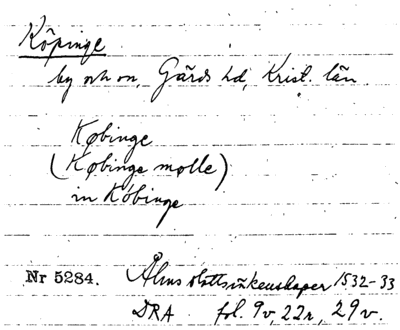 Köpinge
by och sn, Gärds hd, Krist. län
Købinge
(Købinge molle)
in Köbinge
Nr 5284. Åhus slottsräkenskaper 1532-33
DRA fol. 9v, 22r, 29v.